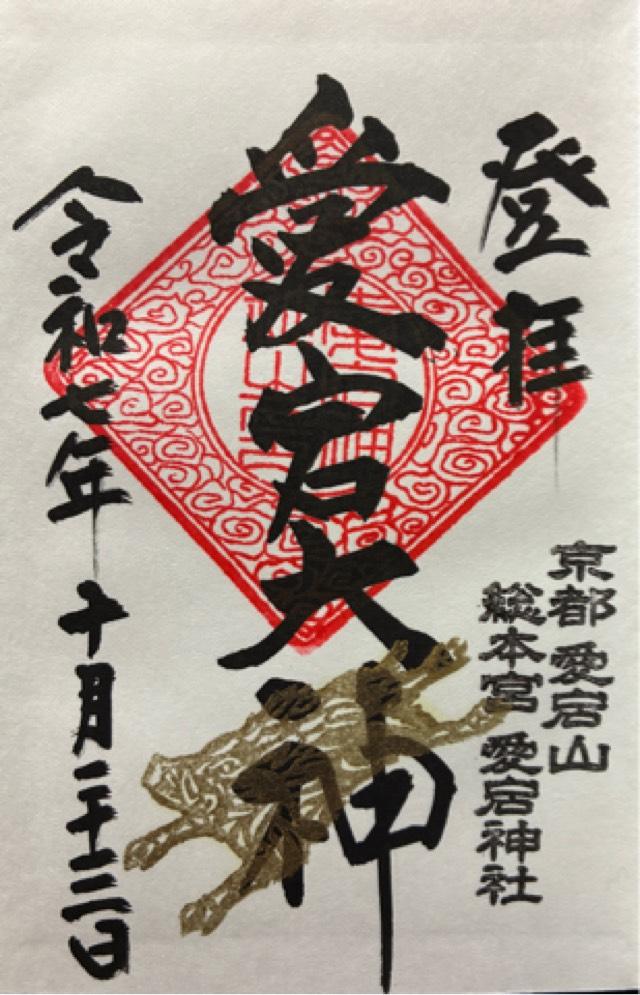 登拝
京都 愛宕山
総本宮 愛宕神社
愛宕大神
令和七年十月二十二日